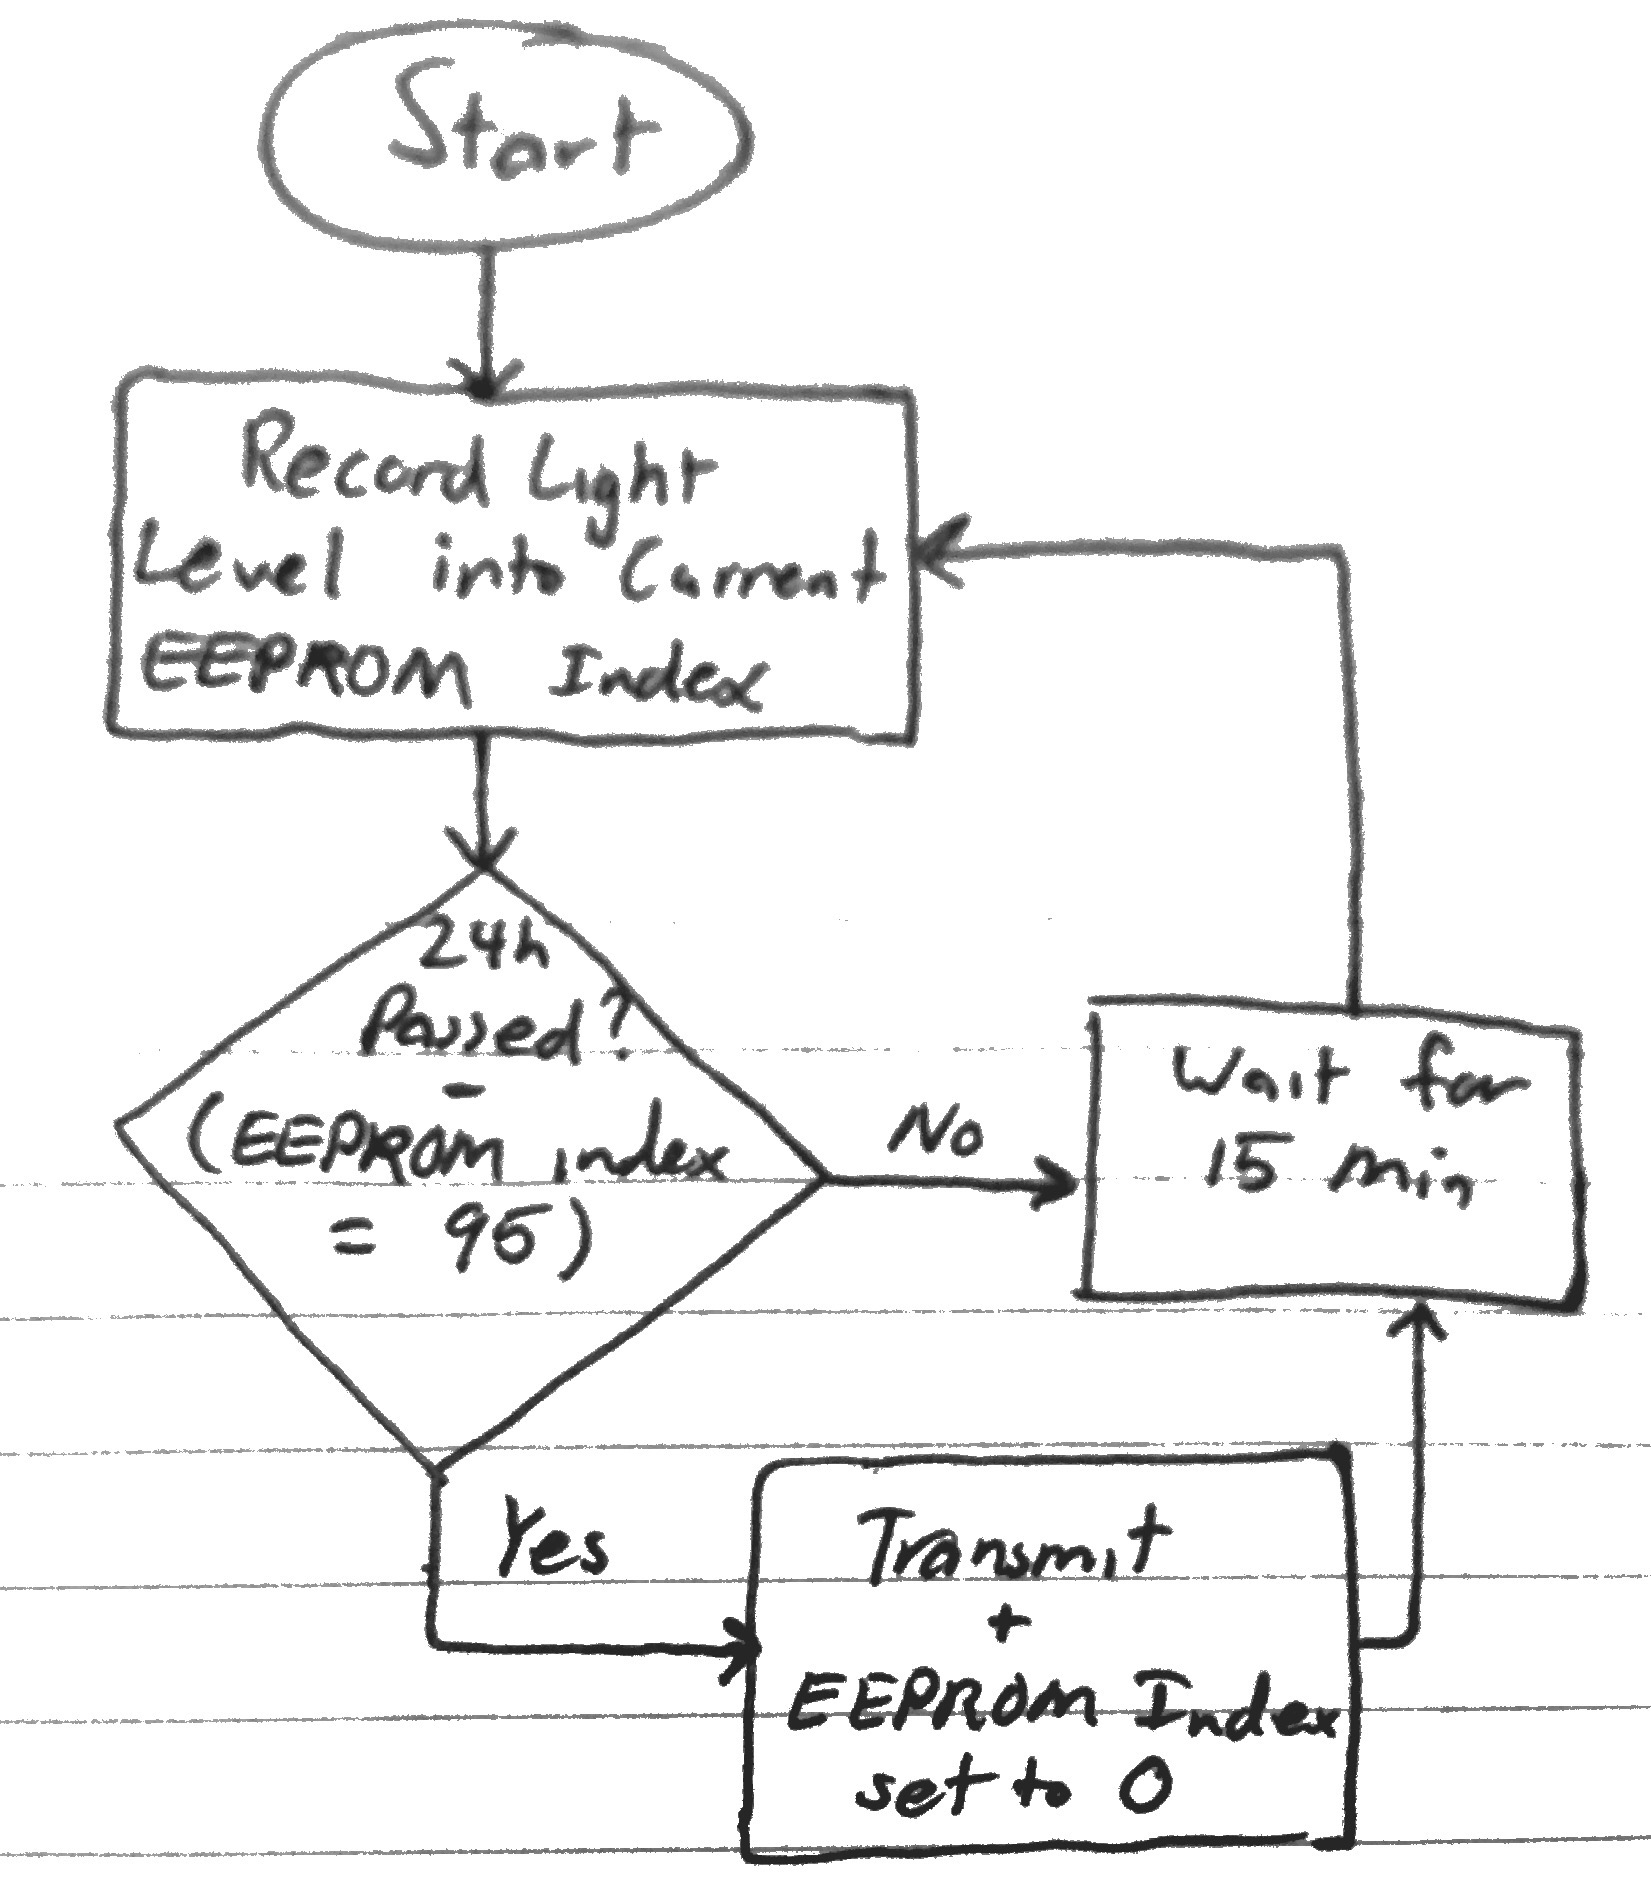 Start
Record Light
Level into Current
EEPROM Index
24h
Passed?
-
(EEPROM index
= 95)
No
Wait for
15 min
Yes
Transmit
+
EEPROM Index
set to 0